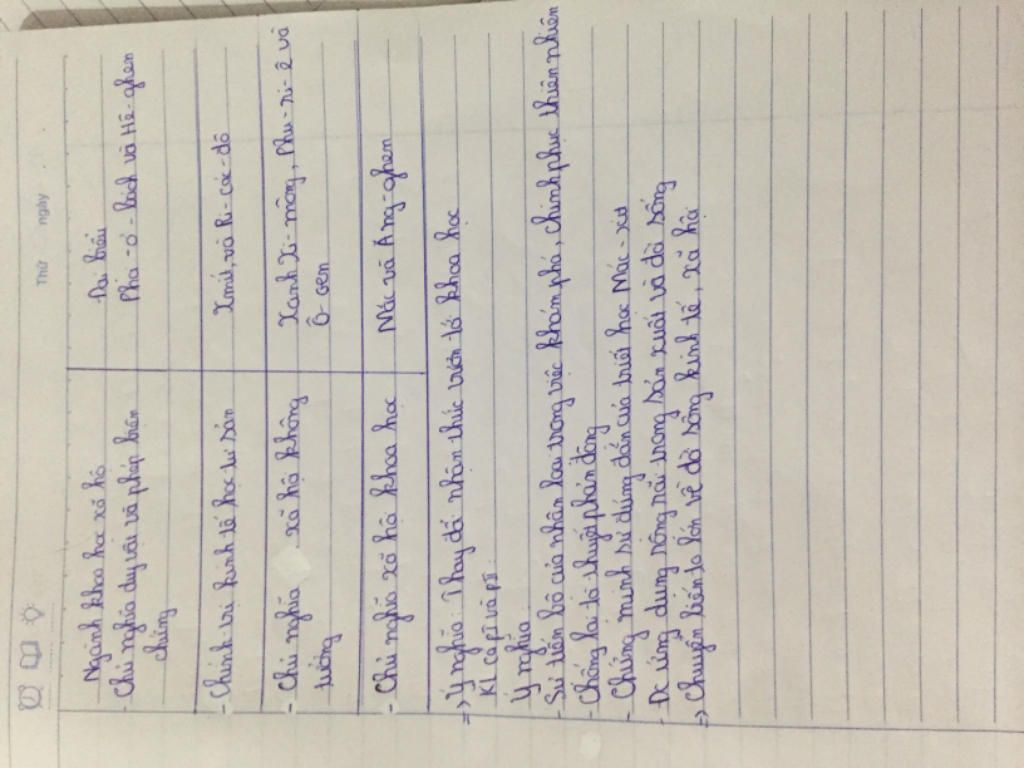 Thứ ngày
Ngành khoa học xã hộ Đại biểu
- Chủ nghĩa duy vật và pháp biện Pha-ơ-bach và Hê-ghen
chứng
- Chính trị kinh tế học tư sản Xmit, và Ri-các-đô
- Chủ nghĩa xã hộ không Xanh Xi-mông, Phu-ri-ê và
tưởng Ô-oen
- Chủ nghĩa xã hộ khoa học Mác và Ăng-ghem
=> Ý nghĩa: Thay đổi nhận thức vươn tớ khoa học
Kl cả pĩ và pĩĩ:
Ý nghĩa
- Sự tiến bộ của nhân loại trong việc khám phá, chinh phục thiên nhiên
- Chống lại tô thuyết phản động
- Chứng minh sự đúng đắn của triết học Mác-xít
- Đc ứng dụng rộng rãi trong sản xuất và đờ sống
=> Chuyển biến to lớn về đờ sống kinh tế, xã hội